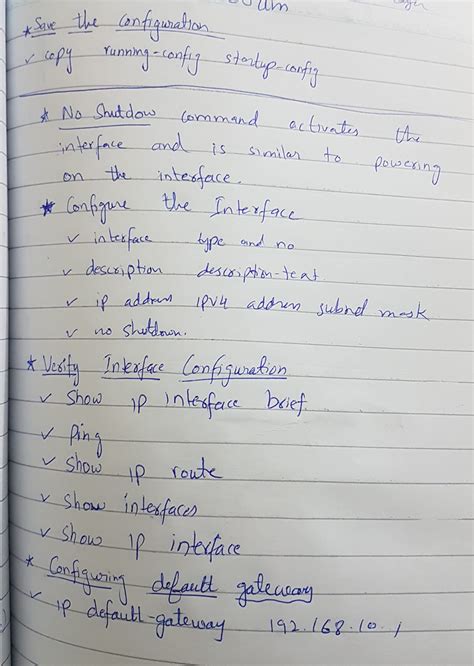 * Save the Configuration
✓ copy running-config startup-config
* No Shutdow command activates the
interface and is similar to powering
on the interface.
* Configure the Interface
✓ interface type and no
✓ description description-text
✓ ip address IPV4 address subnet mask
✓ no shutdown.
* Verify Interface Configuration
✓ Show IP interface brief
✓ Ping
✓ Show IP route
✓ Show interfaces
✓ Show IP interface
* Configuring default gateway
✓ IP default-gateway 192.168.10.1